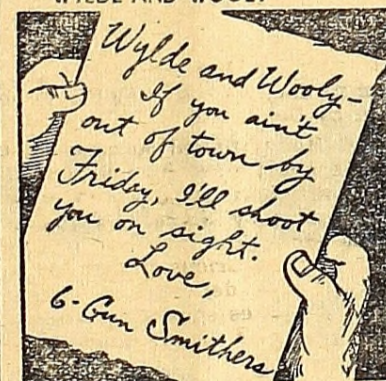 WYLDE AND WOOLY
Wylde and Wooly-
If you ain't
out of town by
Friday, I'll shoot
you on sight.
Love,
6-Gun Smithers